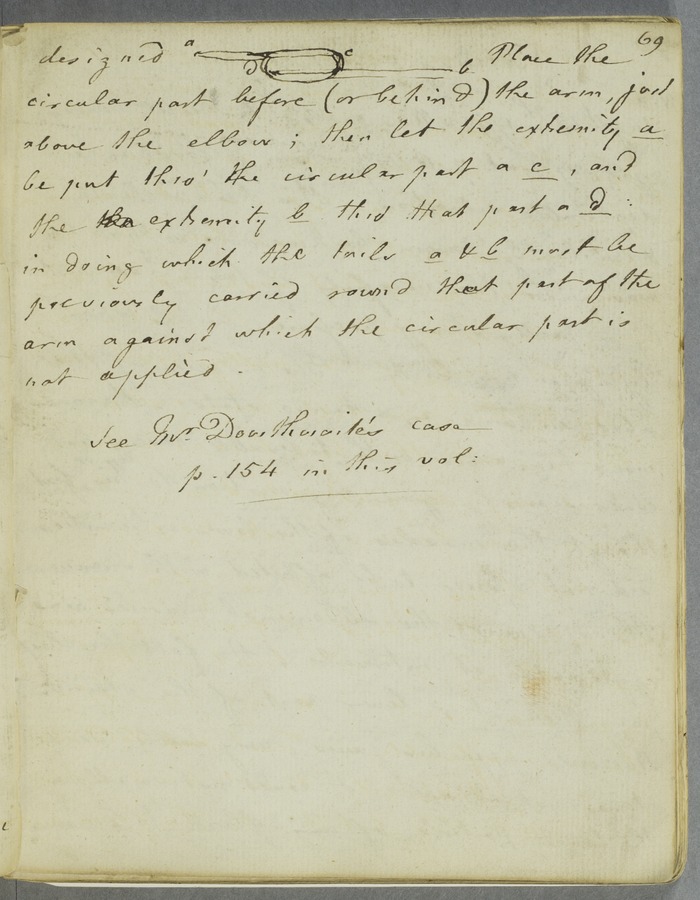 69
designed a c d b Place the
circular part before (or behind) the arm, just
above the elbow ; then let the extremity a
be put thro' the circular part a c , and
the extremity b thro that part a d :
in doing which the tails a & b must be
previously carried round that part of the
arm against which the circular part is
not applied .
See Mr. Dowthwaite's case
p. 154 in this vol: